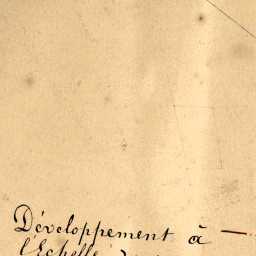 Développement à
l'Echelle